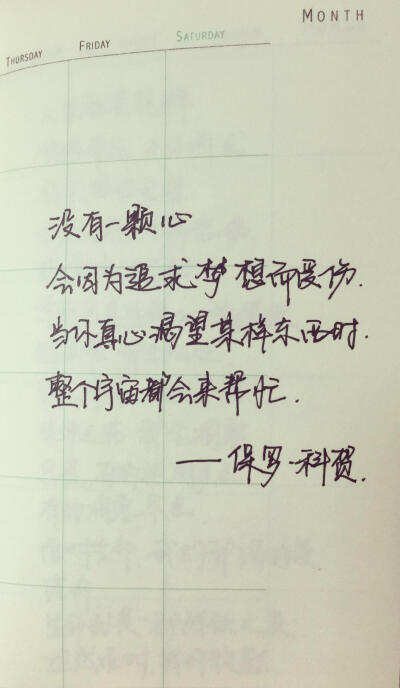 MONTH
THURSDAY FRIDAY SATURDAY
没有一颗心
会因为追求梦想而受伤.
当你真心渴望某样东西时.
整个宇宙都会来帮忙.
——保罗·科贺.